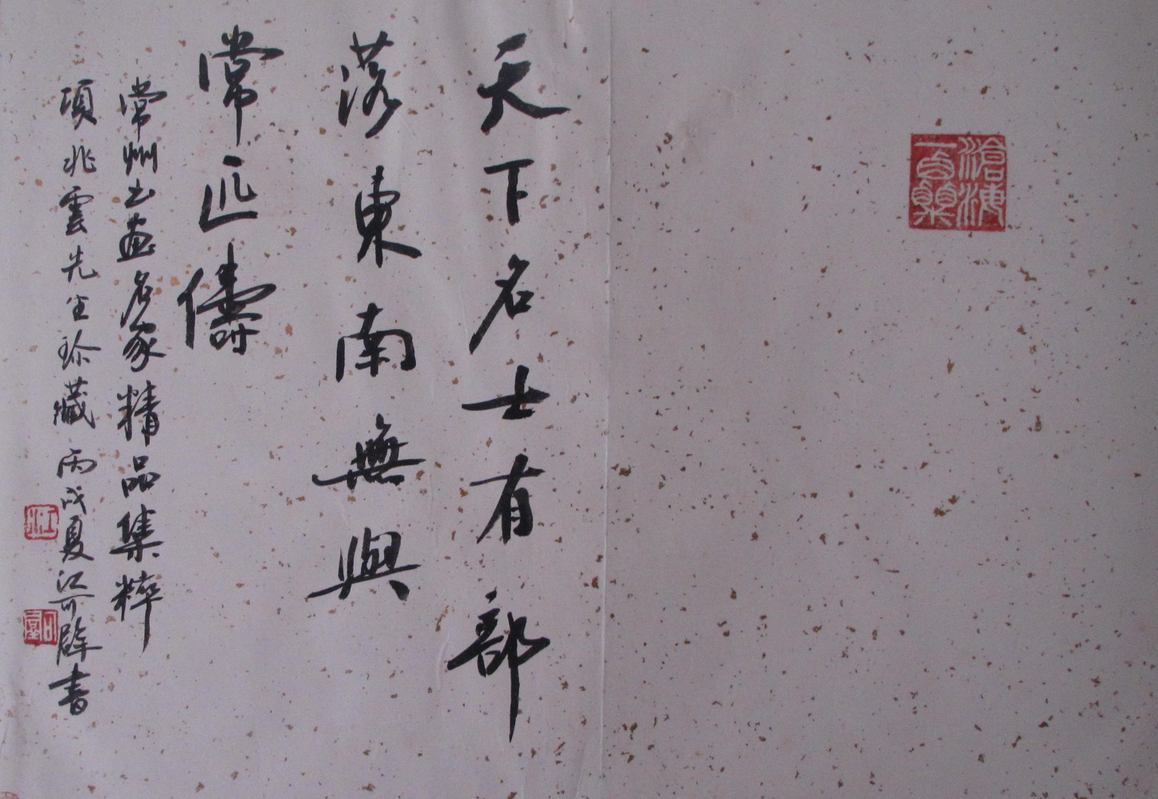 滄海一粟
天下名士有部
落東南無與
常匹儔
常州书畫名家精品集粹
項兆雲先生珍藏 丙戌夏江書
江